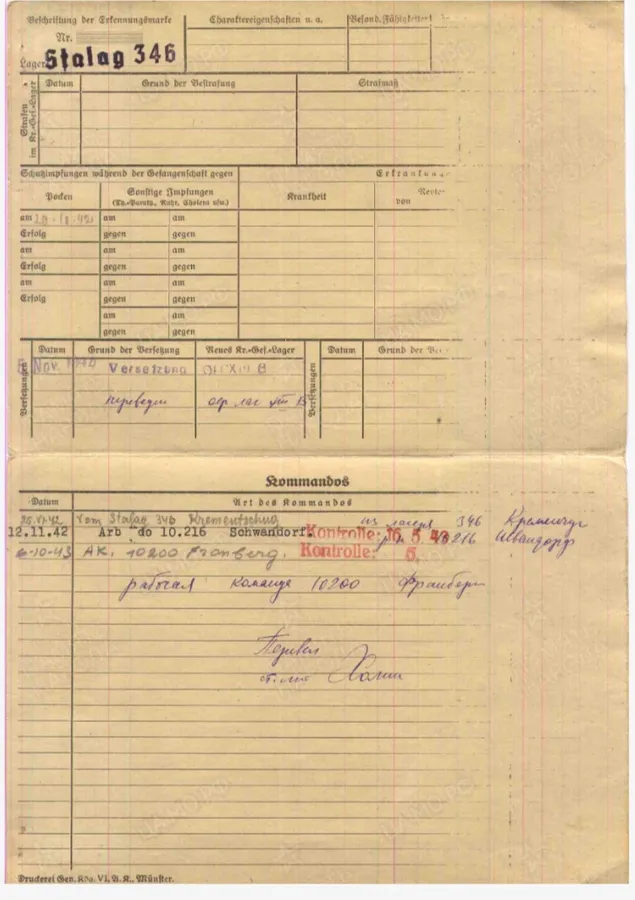 Beschriftung der Erkennungsmarke
Charaktereigenschaften u. a.
Besond. Fähigkeiten
Nr.
Lager: Stalag 346
Strafen im Kr.-Gef.-Lager
Datum
Grund der Bestrafung
Strafmaß
Schutzimpfungen während der Gefangenschaft gegen
Erkrankun
Pocken
Sonstige Impfungen
(Th.-Paraty., Ruhr, Cholera usw.)
Krankheit
Revier
von
am am am
Erfolg gegen gegen
am am am
Erfolg gegen gegen
am am am
Erfolg gegen gegen
am am
gegen gegen
Versetzungen
Datum
Grund der Versetzung
Neues Kr.-Gef.-Lager
Versetzungen
Datum
Grund der Ver
Nov. Versetzung XIII B
переведен
Kommandos
Datum
Art des Kommandos
Vom Stalag 346 Krementschug из лагеря 346 Кременчуг
12.11.42 Arb do 10.216 Schwandorf Kontrolle: 16. 5. 43 Швандорф
6-10-43 AK. 10200 Fronberg. Kontrolle: 5.
рабочая команда 10200
Перевел
ст. л-т
Druckerei Gen. Kdo. VI. A. K., Münster.